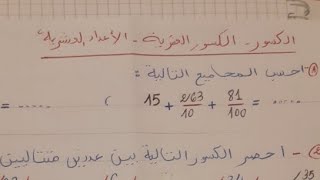 الكسور - الكسور العشرية - الأعداد العشرية
1- احسب المجاميع التالية :
15 + 263/10 + 81/100 = ..... ( .....
2- احصر الكسور التالية بين عددين متتاليين
35